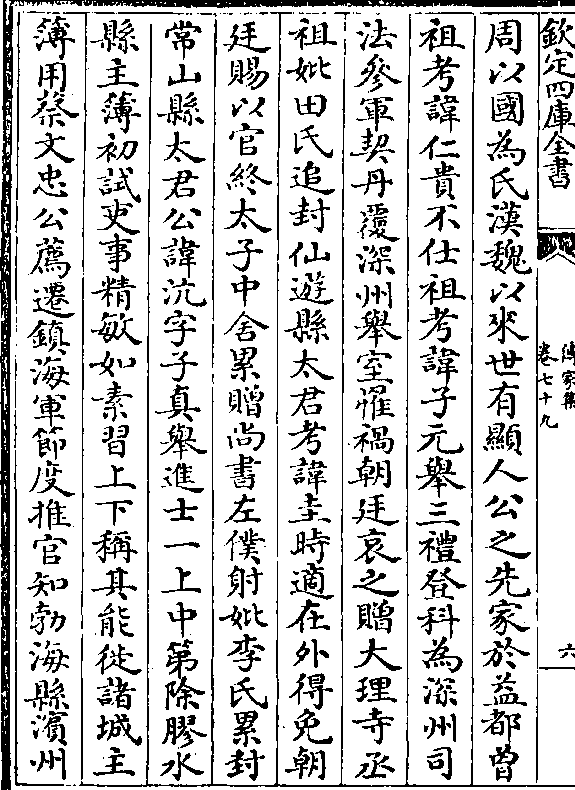 欽定四庫全書
傳家集
卷七十九
六
周以國為氏漢魏以來世有顯人公之先家於益都曾
祖考諱仁貴不仕祖考諱子元舉三禮登科為深州司
法參軍契丹覆深州舉室罹禍朝廷哀之贈大理寺丞
祖妣田氏追封仙遊縣太君考諱圭時適在外得免朝
廷賜以官終太子中舍累贈尚書左僕射妣李氏累封
常山縣太君公諱沆字子真舉進士一上中第除膠水
縣主簿初試吏事精敏如素習上下稱其能徙諸城主
簿用蔡文忠公薦遷鎮海軍節度推官知勃海縣濱州